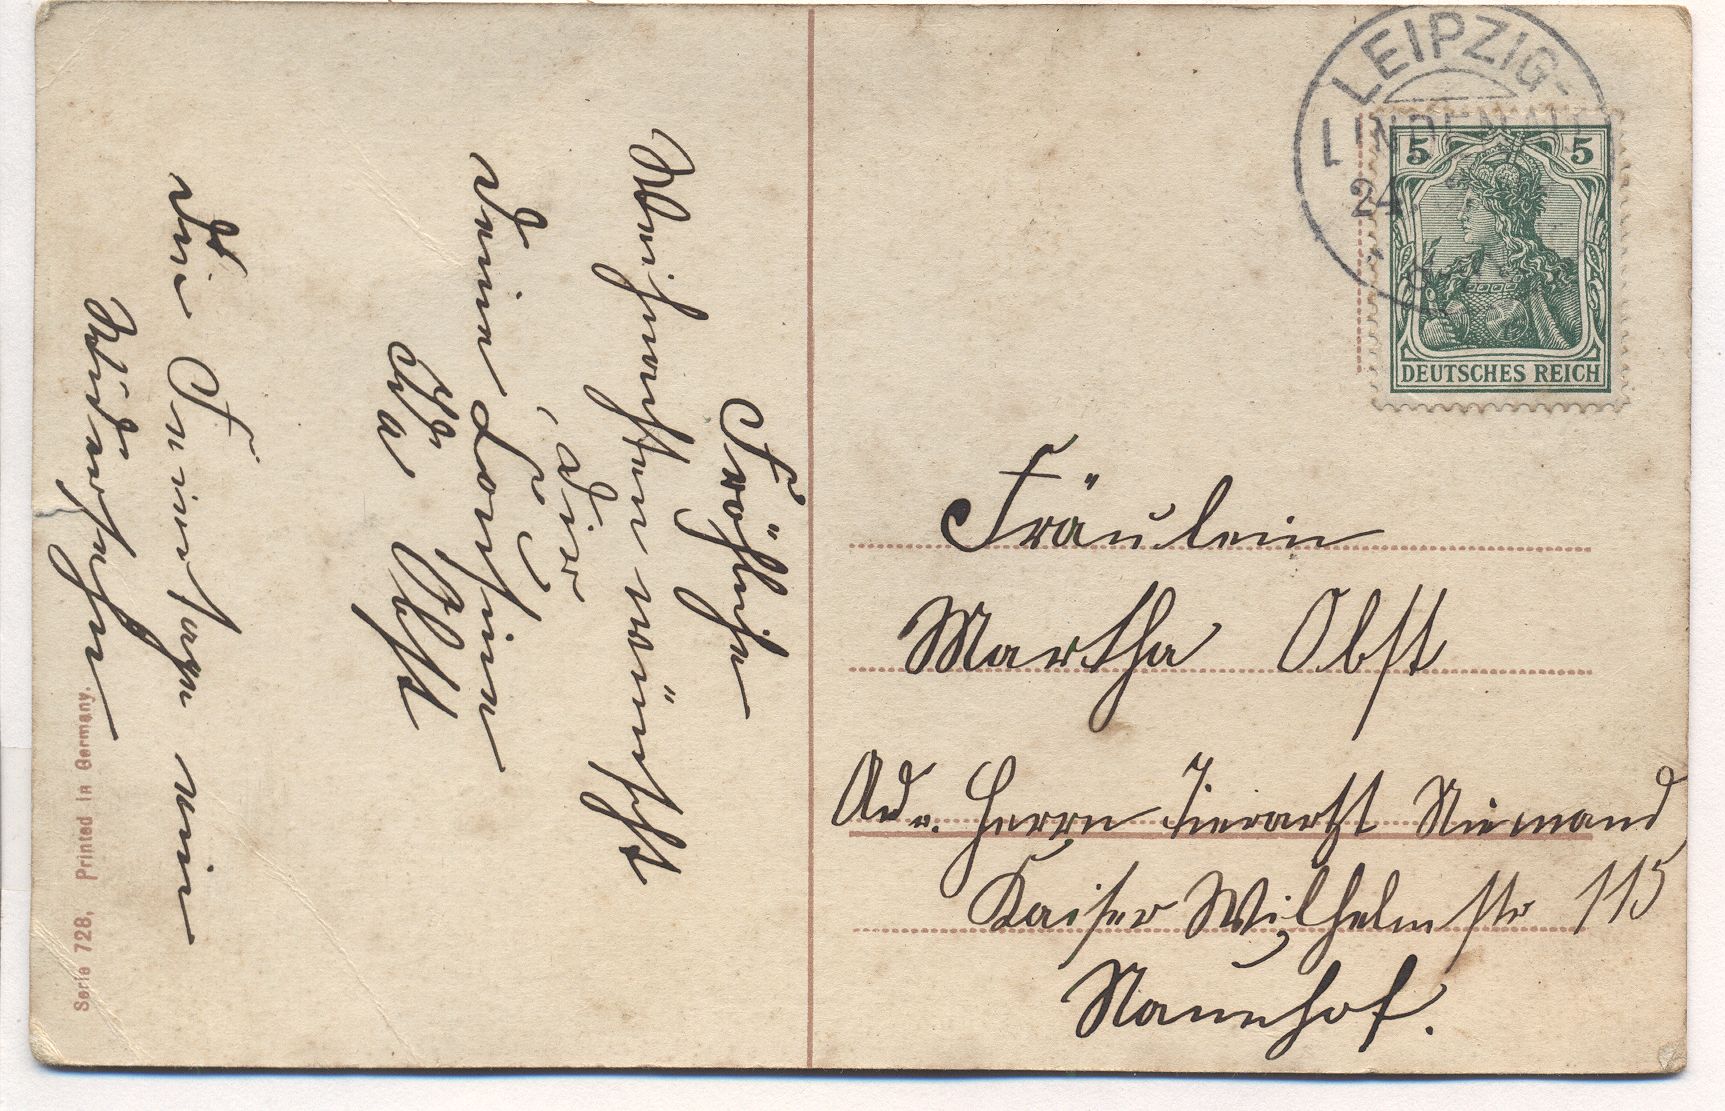 Fröhliche
Weihnachten wünscht
dir
deine Cousine
Ida Obst
die Feiertage ein
Wiedersehen
Serie 728, Printed in Germany.
LEIPZIG-
LINDENAU
24.
5 5
DEUTSCHES REICH
Fräulein
Martha Obst
Adr. Herrn Tierartzt Niemand
Kaiser Wilhelmstr 115
Naunhof.